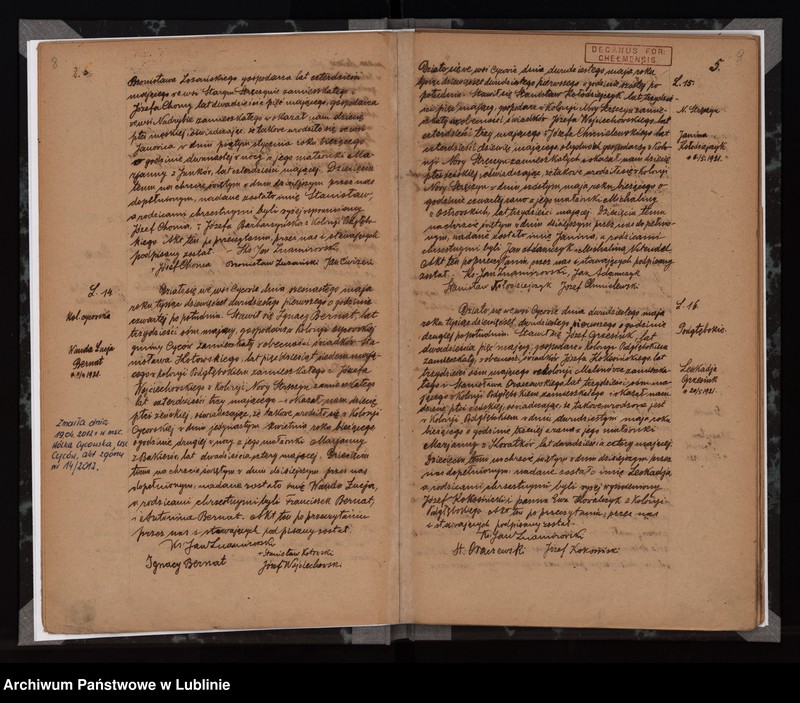 8
Bronisława Łozańskiego gospodarza lat czterdzieści
mającego we wsi Starym Stręczynie zamieszkałego i
Józefa Chomy lat dwadzieścia pięć mającego, gospodarza
we wsi zamieszkałego i okazał nam dziecię
płci męskiej, oświadczając, że takowe urodziło się we wsi
Janowica w dniu piątym stycznia roku bieżącego
o godzinie dwunastej w nocy z jego małżonki Ma-
rjanny z lat czterdzieści mającej. Dziecięciu
temu na chrzcie świętym w dniu dzisiejszym przez nas
dopełnionym, nadane zostało imię Stanisław,
a rodzicami chrzestnymi byli wyżej wspomniany
Józef Choma, i Józefa z Kolonji
Akt ten po przeczytaniu, przez nas i stawających
podpisany został. Ks. Jan Znamirowski
Józef Choma Bronisław
Ł. 14
Kol. cycowska
Wanda Łucja
Bernat
Działo się we wsi Cycowie dnia ósmastego maja
roku tysiąc dziewięćset dwudziestego pierwszego o godzinie
czwartej po południu. Stawił się Ignacy Bernat, lat
trzydzieści ośm mający, gospodarz w Kolonji Cycowskiej
gminy Cyców zamieszkały w obecności świadków Sta-
nisława Kotowskiego lat pięćdziesiąt siedem mają-
cego w Kolonji Podgłębokiem zamieszkałego i Józefa
Wojciechowskiego w Kolonji Nowy Stręczyn zamieszkałego
lat czterdzieści trzy mającego i okazał nam dziecię
płci żeńskiej, oświadczając, że takowe urodziło się w Kolonji
Cycowskiej w dniu jedynastym kwietnia roku bieżącego
o godzinie drugiej w nocy z jego małżonki Marjanny
z lat dwadzieścia cztery mającej. Dziecięciu
temu na chrzcie świętym w dniu dzisiejszym przez nas
dopełnionym, nadane zostało imię Wanda Łucja,
a rodzicami chrzestnymi byli Franciszek Bernat,
i Antonina Bernat. Akt ten po przeczytaniu
przez nas i stawających podpisany został.
Ks. Jan Znamirowski
Stanisław Kotowski
Ignacy Bernat Józef Wojciechowski
Zmarła dnia
19.06.2012 r. w msc.
Wólka Cycowska, USC
Cyców, akt zgonu
nr 14/2012.
DECANUS FOR:
CHEŁMENSIS
5.
9
Działo się we wsi Cycowie dnia dwudziestego maja roku
tysiąc dziewięćset dwudziestego pierwszego o godzinie szóstej po
południu. Stawił się Stanisław Kołodziejczyk, lat trzydzieś-
ci pięć mający, gospodarz w Kolonji Nowy Stręczyn zamie-
szkały w obecności świadków Józefa Wojciechowskiego lat
czterdzieści trzy mającego i Józefa Chmielewskiego, lat
czterdzieści dziewięć mającego obydwóch gospodarzy z Kolo-
nji Nowy Stręczyn zamieszkałych i okazał nam dziecię
płci żeńskiej, oświadczając, że takowe urodziło się w Kolonji
Nowy Stręczyn w dniu szóstym maja roku bieżącego o
godzinie czwartej rano z jego małżonki Michaliny
z Ostrowskich, lat trzydzieści mającej. Dziecięciu temu
na chrzcie świętym w dniu dzisiejszym przez nas dopełnio-
nym, nadane zostało imię Janina, a rodzicami
chrzestnymi byli Jan Adamczyk i Michalina
Akt ten po przeczytaniu, przez nas i stawających podpisany
został. Ks. Jan Znamirowski, Jan Adamczyk
Stanisław Kołodziejczyk Józef Chmielewski
Ł. 15.
N. Stręczyn
Janina
Kołodziejczyk
Działo się we wsi Cycowie dnia dwudziestego maja
roku tysiąc dziewięćset dwudziestego pierwszego o godzinie
drugiej po południu. Stawił się Józef Grzesiuk, lat
dwadzieścia pięć mający, gospodarz w Kolonji Podgłębokiem
zamieszkały, w obecności świadków Józefa Kokosińskiego lat
trzydzieści ośm mającego w Kolonji Malinówce zamieszka-
łego i Stanisława Oraczewskiego lat trzydzieści ośm ma-
jącego w Kolonji Podgłębokiem zamieszkałego i okazał nam
dziecię płci żeńskiej, oświadczając, że takowe urodzone jest
w Kolonji Podgłębokiem w dniu dwudziestym maja roku
bieżącego o godzinie trzeciej z rana z jego małżonki
Marjanny z lat dwadzieścia cztery mającej.
Dziecięciu temu na chrzcie świętym w dniu dzisiejszym przez
nas dopełnionym, nadane zostało imię Leokadja
a rodzicami chrzestnymi byli wyżej wymieniony
Józef Kokosiński i panna Ewa z Kolonji
Podgłębokie. Akt ten po przeczytaniu, przez nas
i stawających podpisany został.
Ks. Jan Znamirowski
St. Oraczewski Józef Kokosiński
Ł. 16.
Podgłębokie.
Leokadja
Grzesiuk
Archiwum Państwowe w Lublinie